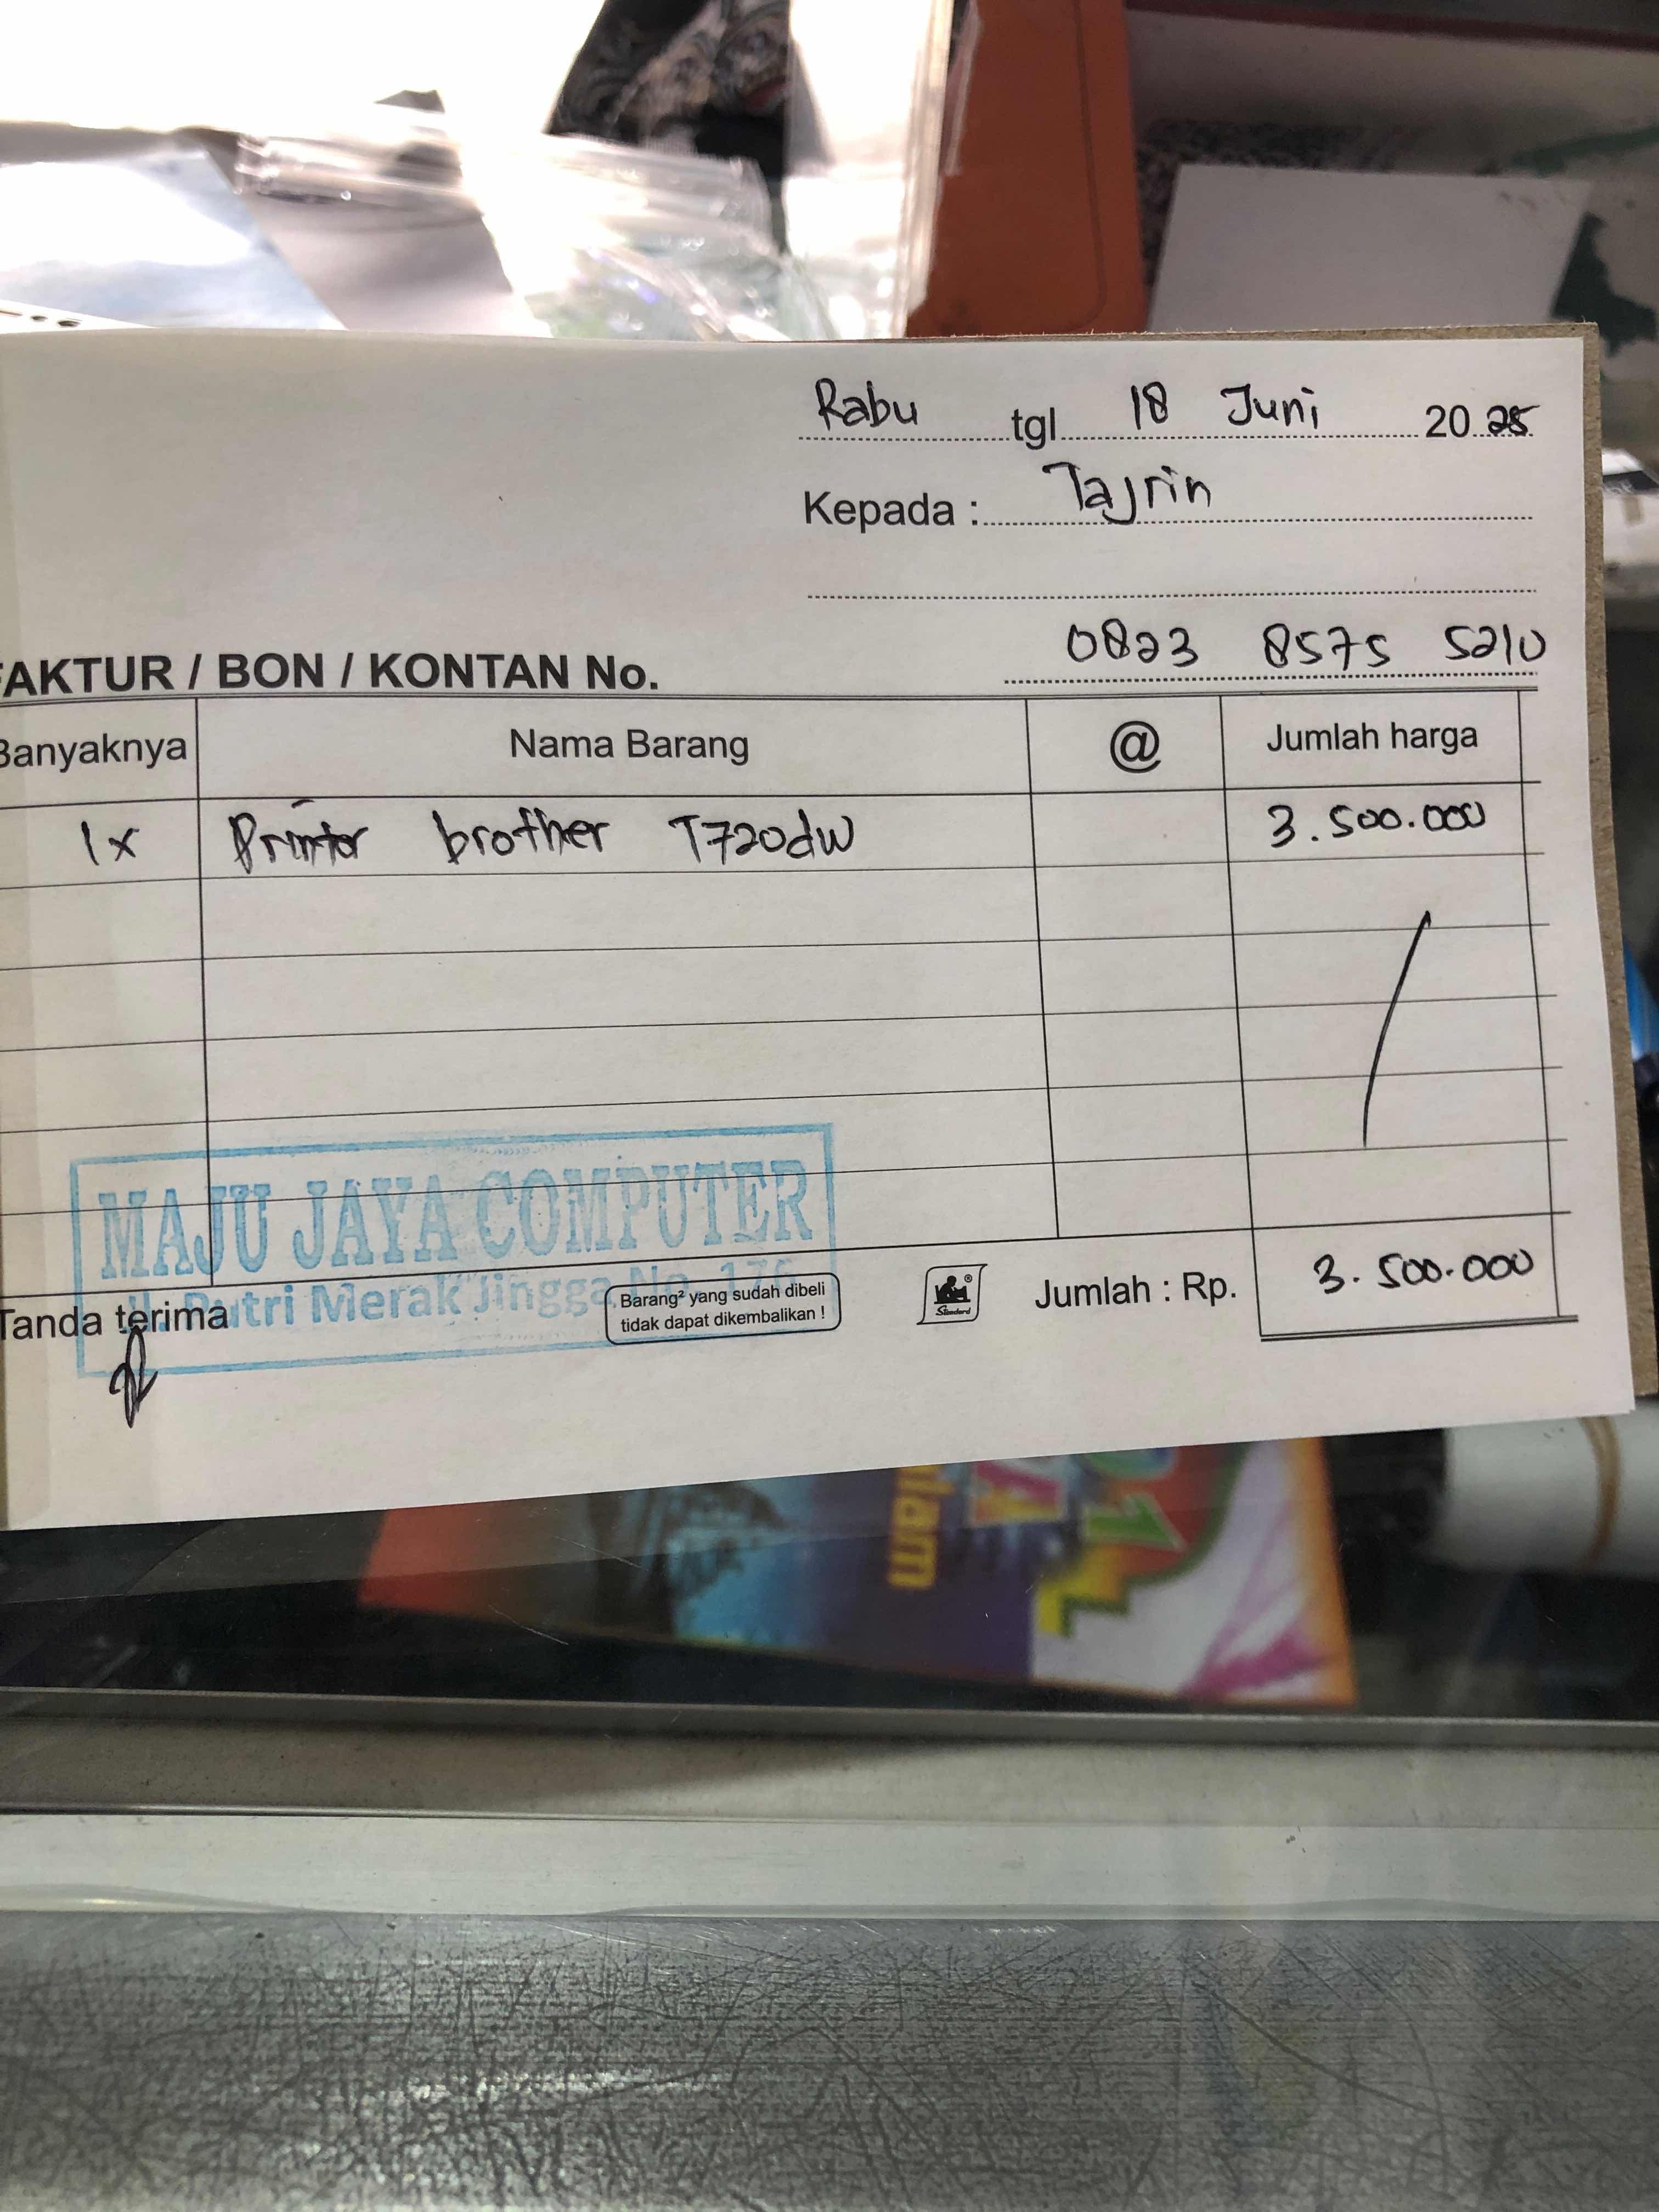 Rabu tgl 18 Juni 2025
Kepada : Tajrin
0823 8575 5210
FAKTUR / BON / KONTAN No.
Banyaknya Nama Barang @ Jumlah harga
1x Printer brother T720dw 3.500.000
MAJU JAYA COMPUTER
Jl. Putri Merak Jingga No. 176
Tanda terima
Barang² yang sudah dibeli
tidak dapat dikembalikan !
Standard
Jumlah : Rp. 3.500.000